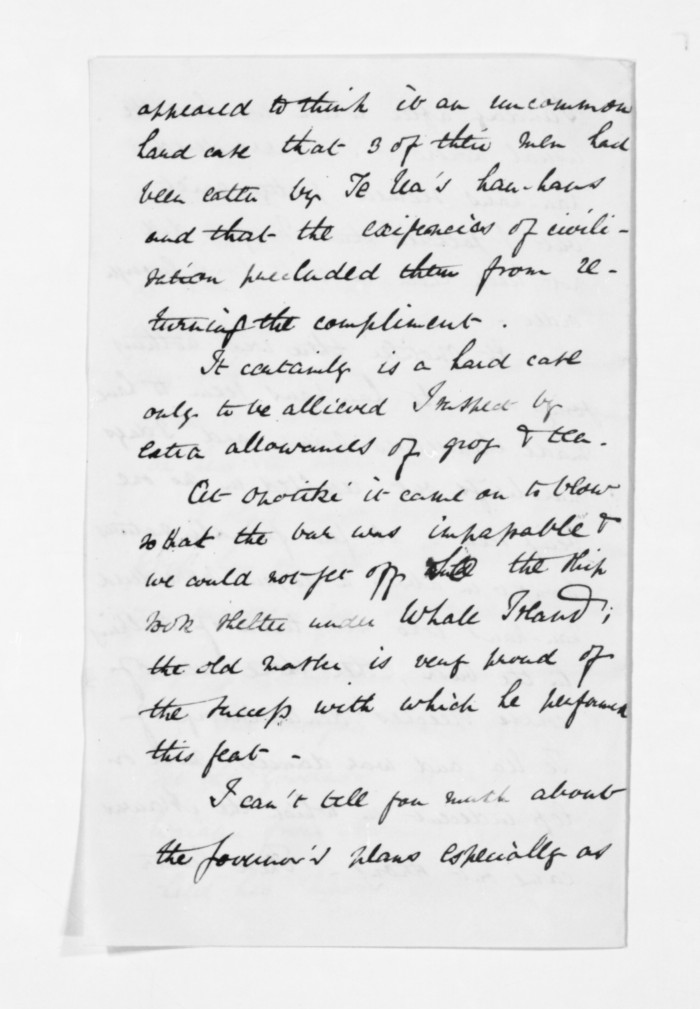 appeared to think it an uncommon
hard case that 3 of their men had
been eaten by Te Ua's hau-haus
and that the exigencies of civili-
sation precluded them from re-
turning the compliment.
It certainly is a hard case
only to be allieved I suspect by
extra allowances of grog & tea.
At Opotiki it came on to blow
so that the bar was impassable &
we could not get off the ship
took shelter under Whale Island;
the old master is very proud of
the success with which he performed
this feat -
I can't tell you much about
the Governor's plans especially as